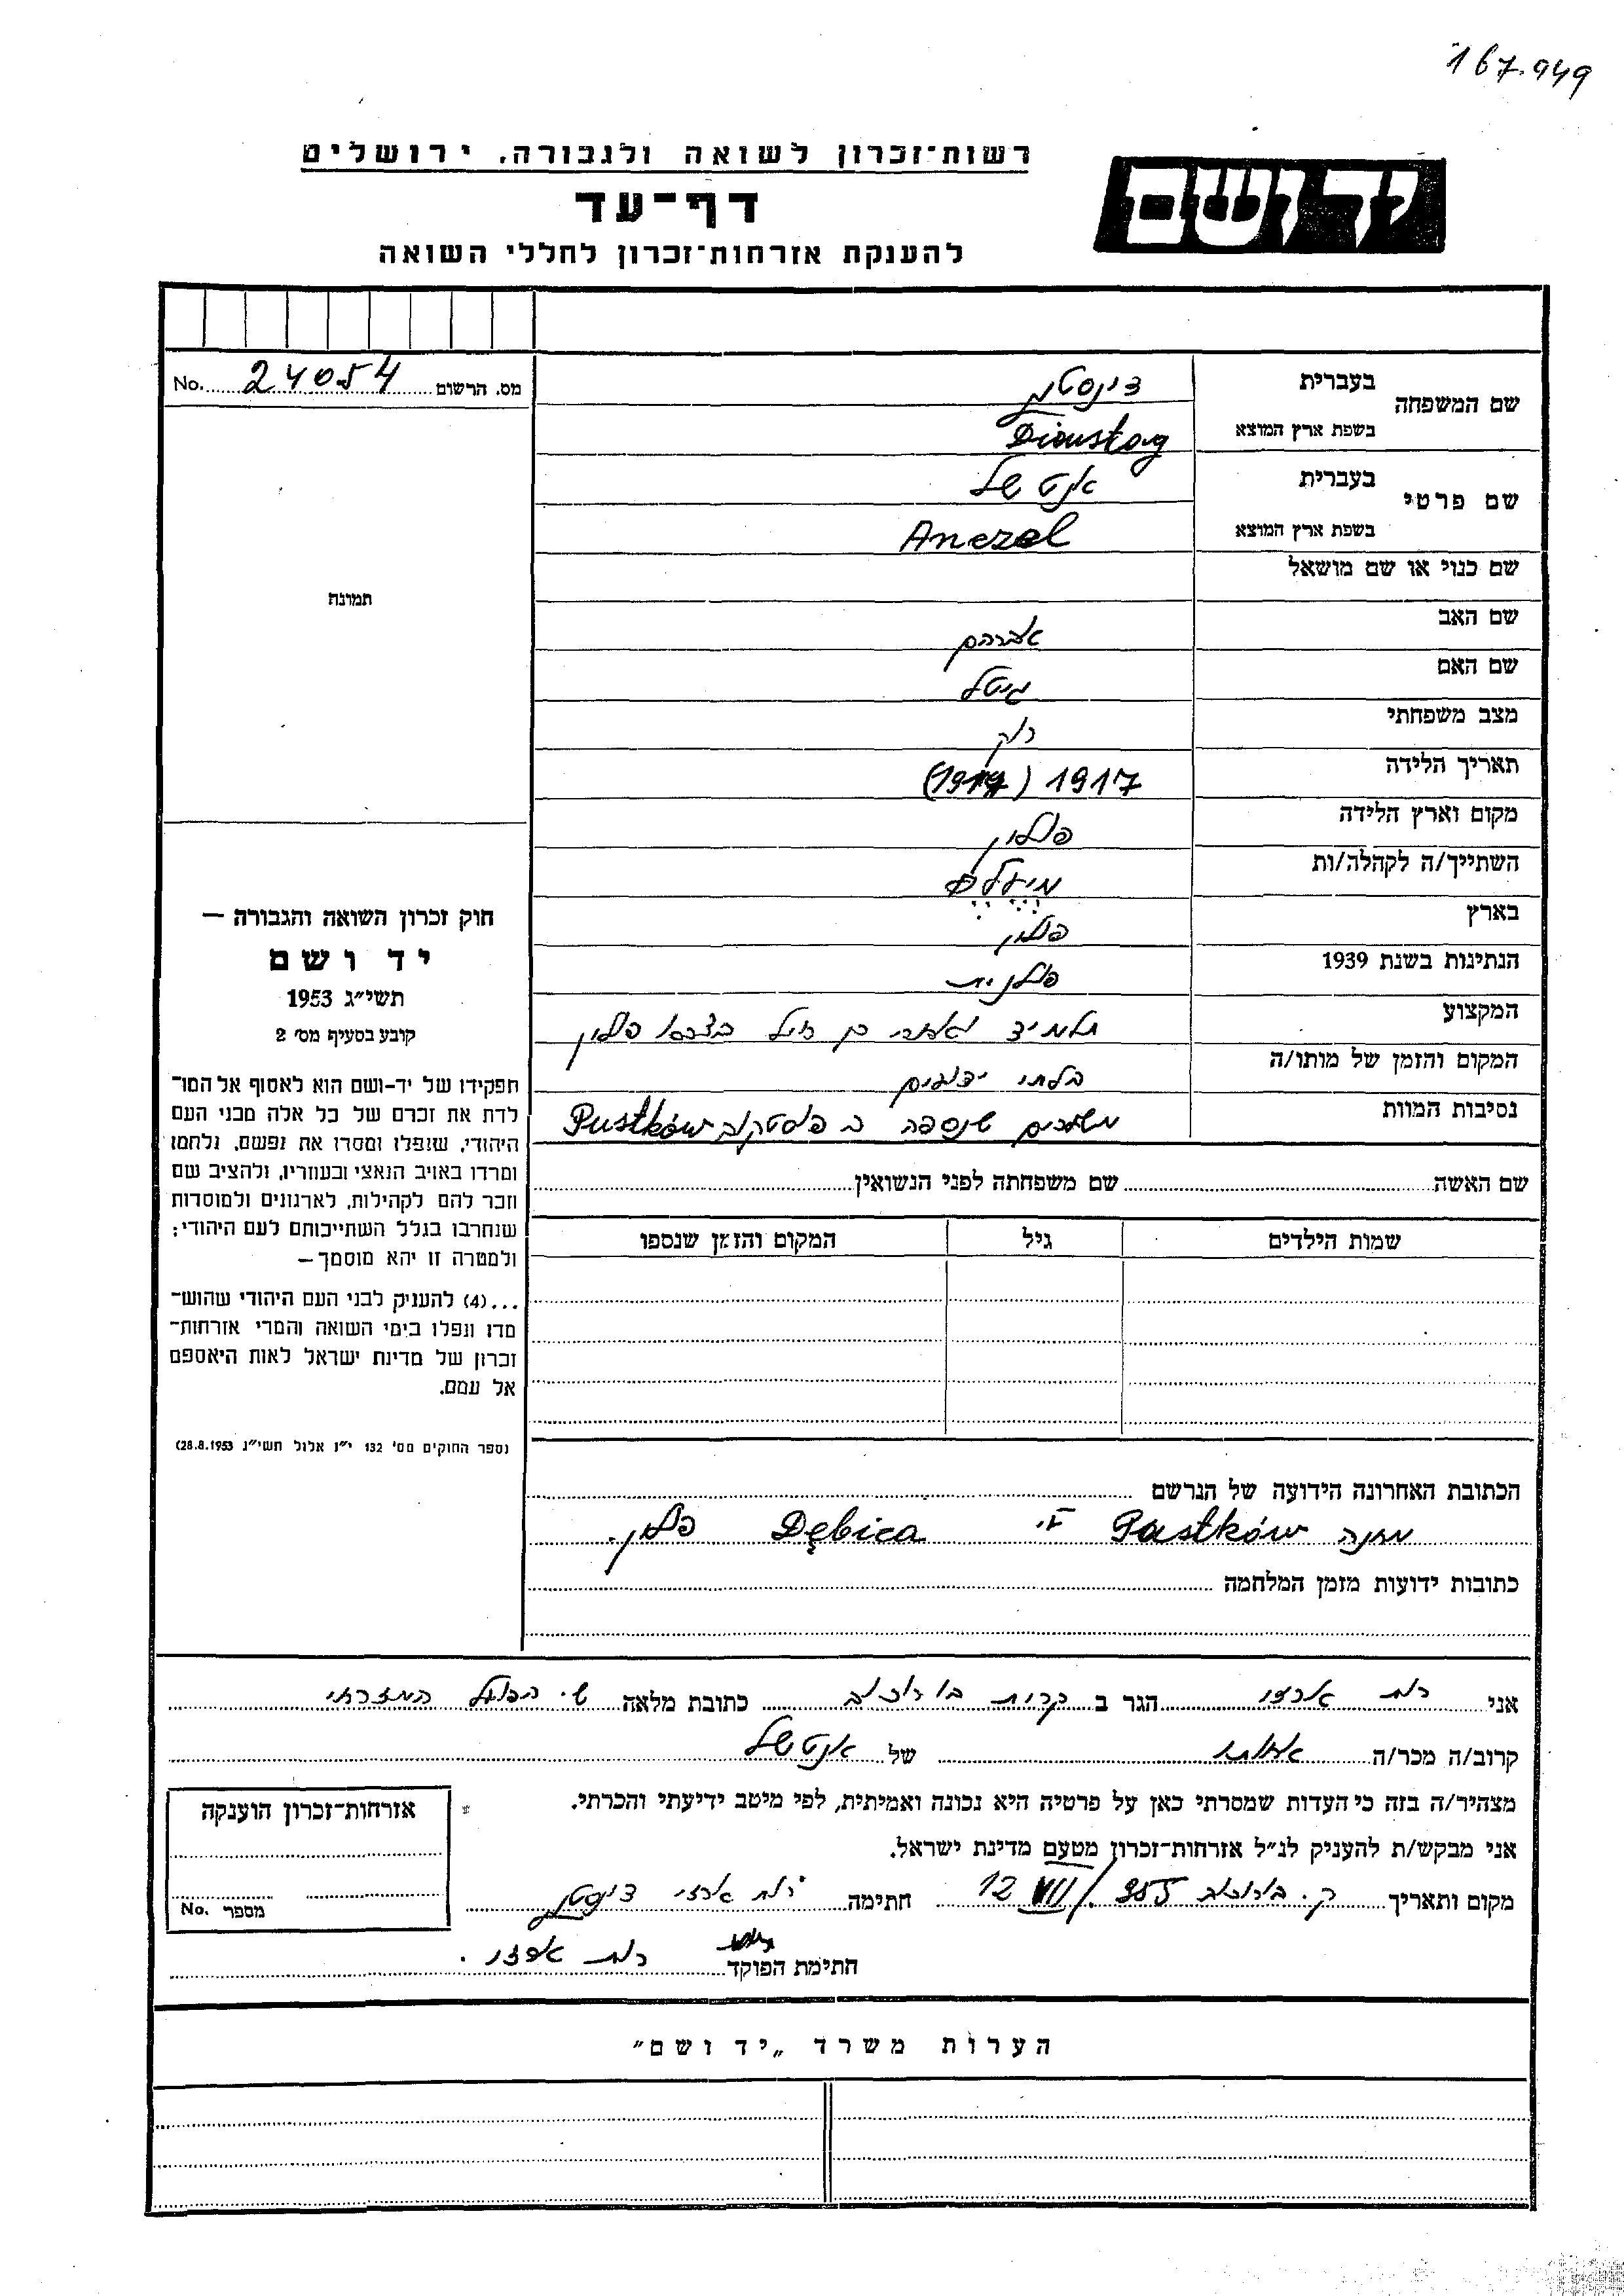 167.949
רשות־זכרון לשואה ולגבורה, ירושלים
יד ושם
דף־עד
להענקת אזרחות־זכרון לחללי השואה
מס. הרשום 24054 No.
שם המשפחה
בעברית דינסטג
בשפת ארץ המוצא Dienstag
שם פרטי
בעברית אנטשל
בשפת ארץ המוצא Anczel
שם כנוי או שם מושאל
שם האב אברהם
שם האם גיטל
מצב משפחתי רוק
תאריך הלידה 1917 (1917)
מקום וארץ הלידה פולין
השתייך/ה לקהלה/ות מיעלעץ
בארץ פולין
הנתינות בשנת 1939 פולנית
המקצוע תלמיד
המקום והזמן של מותו/ה בלתי ידועים
נסיבות המוות משערים שנספה ב פוסטקוב Pustków
שם האשה
שם משפחתה לפני הנשואין
שמות הילדים
גיל
המקום והזמן שנספו
הכתובת האחרונה הידועה של הנרשם
מחנה Pustków ע"י Dębica פולין.
כתובות ידועות מזמן המלחמה
תמונה
חוק זכרון השואה והגבורה —
יד ושם
תשי״ג 1953
קובע בסעיף מס׳ 2
תפקידו של יד-ושם הוא לאסוף אל המו־
לדת את זכרם של כל אלה מבני העם
היהודי, שנפלו ומסרו את נפשם, נלחמו
ומרדו באויב הנאצי ובעוזריו, ולהציב שם
וזכר להם לקהילות, לארגונים ולמוסדות
שנחרבו בגלל השתייכותם לעם היהודי;
ולמטרה זו יהא מוסמך —
...(4) להעניק לבני העם היהודי שהוש־
מדו ונפלו בימי השואה והמרי אזרחות־
זכרון של מדינת ישראל לאות היאספם
אל עמם.
(ספר החוקים מס׳ 132 י״ז אלול תשי״ג 28.8.1953)
אני רות הגר ב קרית בורוכוב כתובת מלאה ש. הפועל המזרחי
קרוב/ה מכר/ה אחות של אנטשל
מצהיר/ה בזה כי העדות שמסרתי כאן על פרטיה היא נכונה ואמיתית, לפי מיטב ידיעתי והכרתי.
אני מבקש/ת להעניק לנ״ל אזרחות־זכרון מטעם מדינת ישראל.
מקום ותאריך ק. בורוכוב 955/VII 12 חתימה רות דינסטג
חתימת הפוקד רות
אזרחות־זכרון הוענקה
מספר No.
הערות משרד „יד ושם״